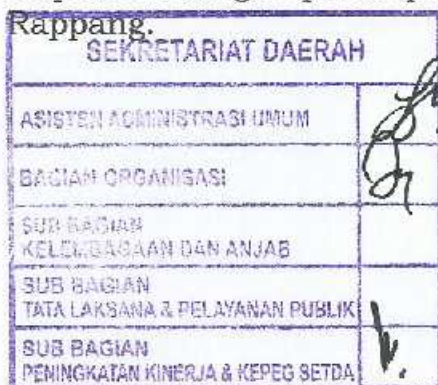 Rappang.
SEKRETARIAT DAERAH
ASISTEN ADMINISTRASI UMUM
BAGIAN ORGANISASI
SUB BAGIAN
KELEMBAGAAN DAN ANJAB
SUB BAGIAN
TATA LAKSANA & PELAYANAN PUBLIK
SUB BAGIAN
PENINGKATAN KINERJA & KEPEG SETDA